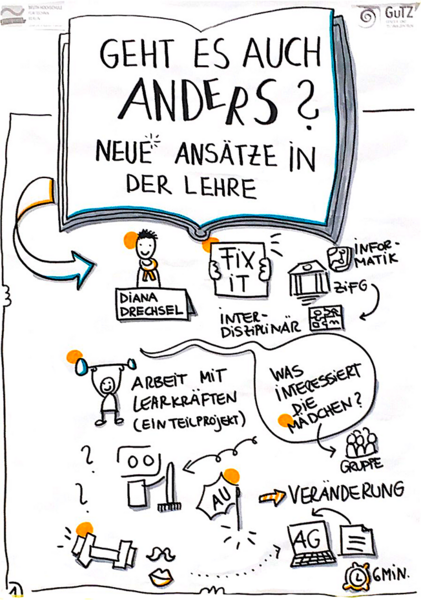 GUTZ
GEHT ES AUCH
ANDERS?
NEUE ANSÄTZE IN
DER LEHRE
DIANA
DRECHSEL
FIX
IT
INFOR-
MATIK
ZiFG
INTER-
DISZIPLINÄR
ARBEIT MIT
LEARKRÄFTEN
(EIN TEILPROJEKT)
WAS
INTERESSIERT
DIE
MÄDCHEN?
GRUPPE
?
?
AU
VERÄNDERUNG
4G
6 MIN.
1